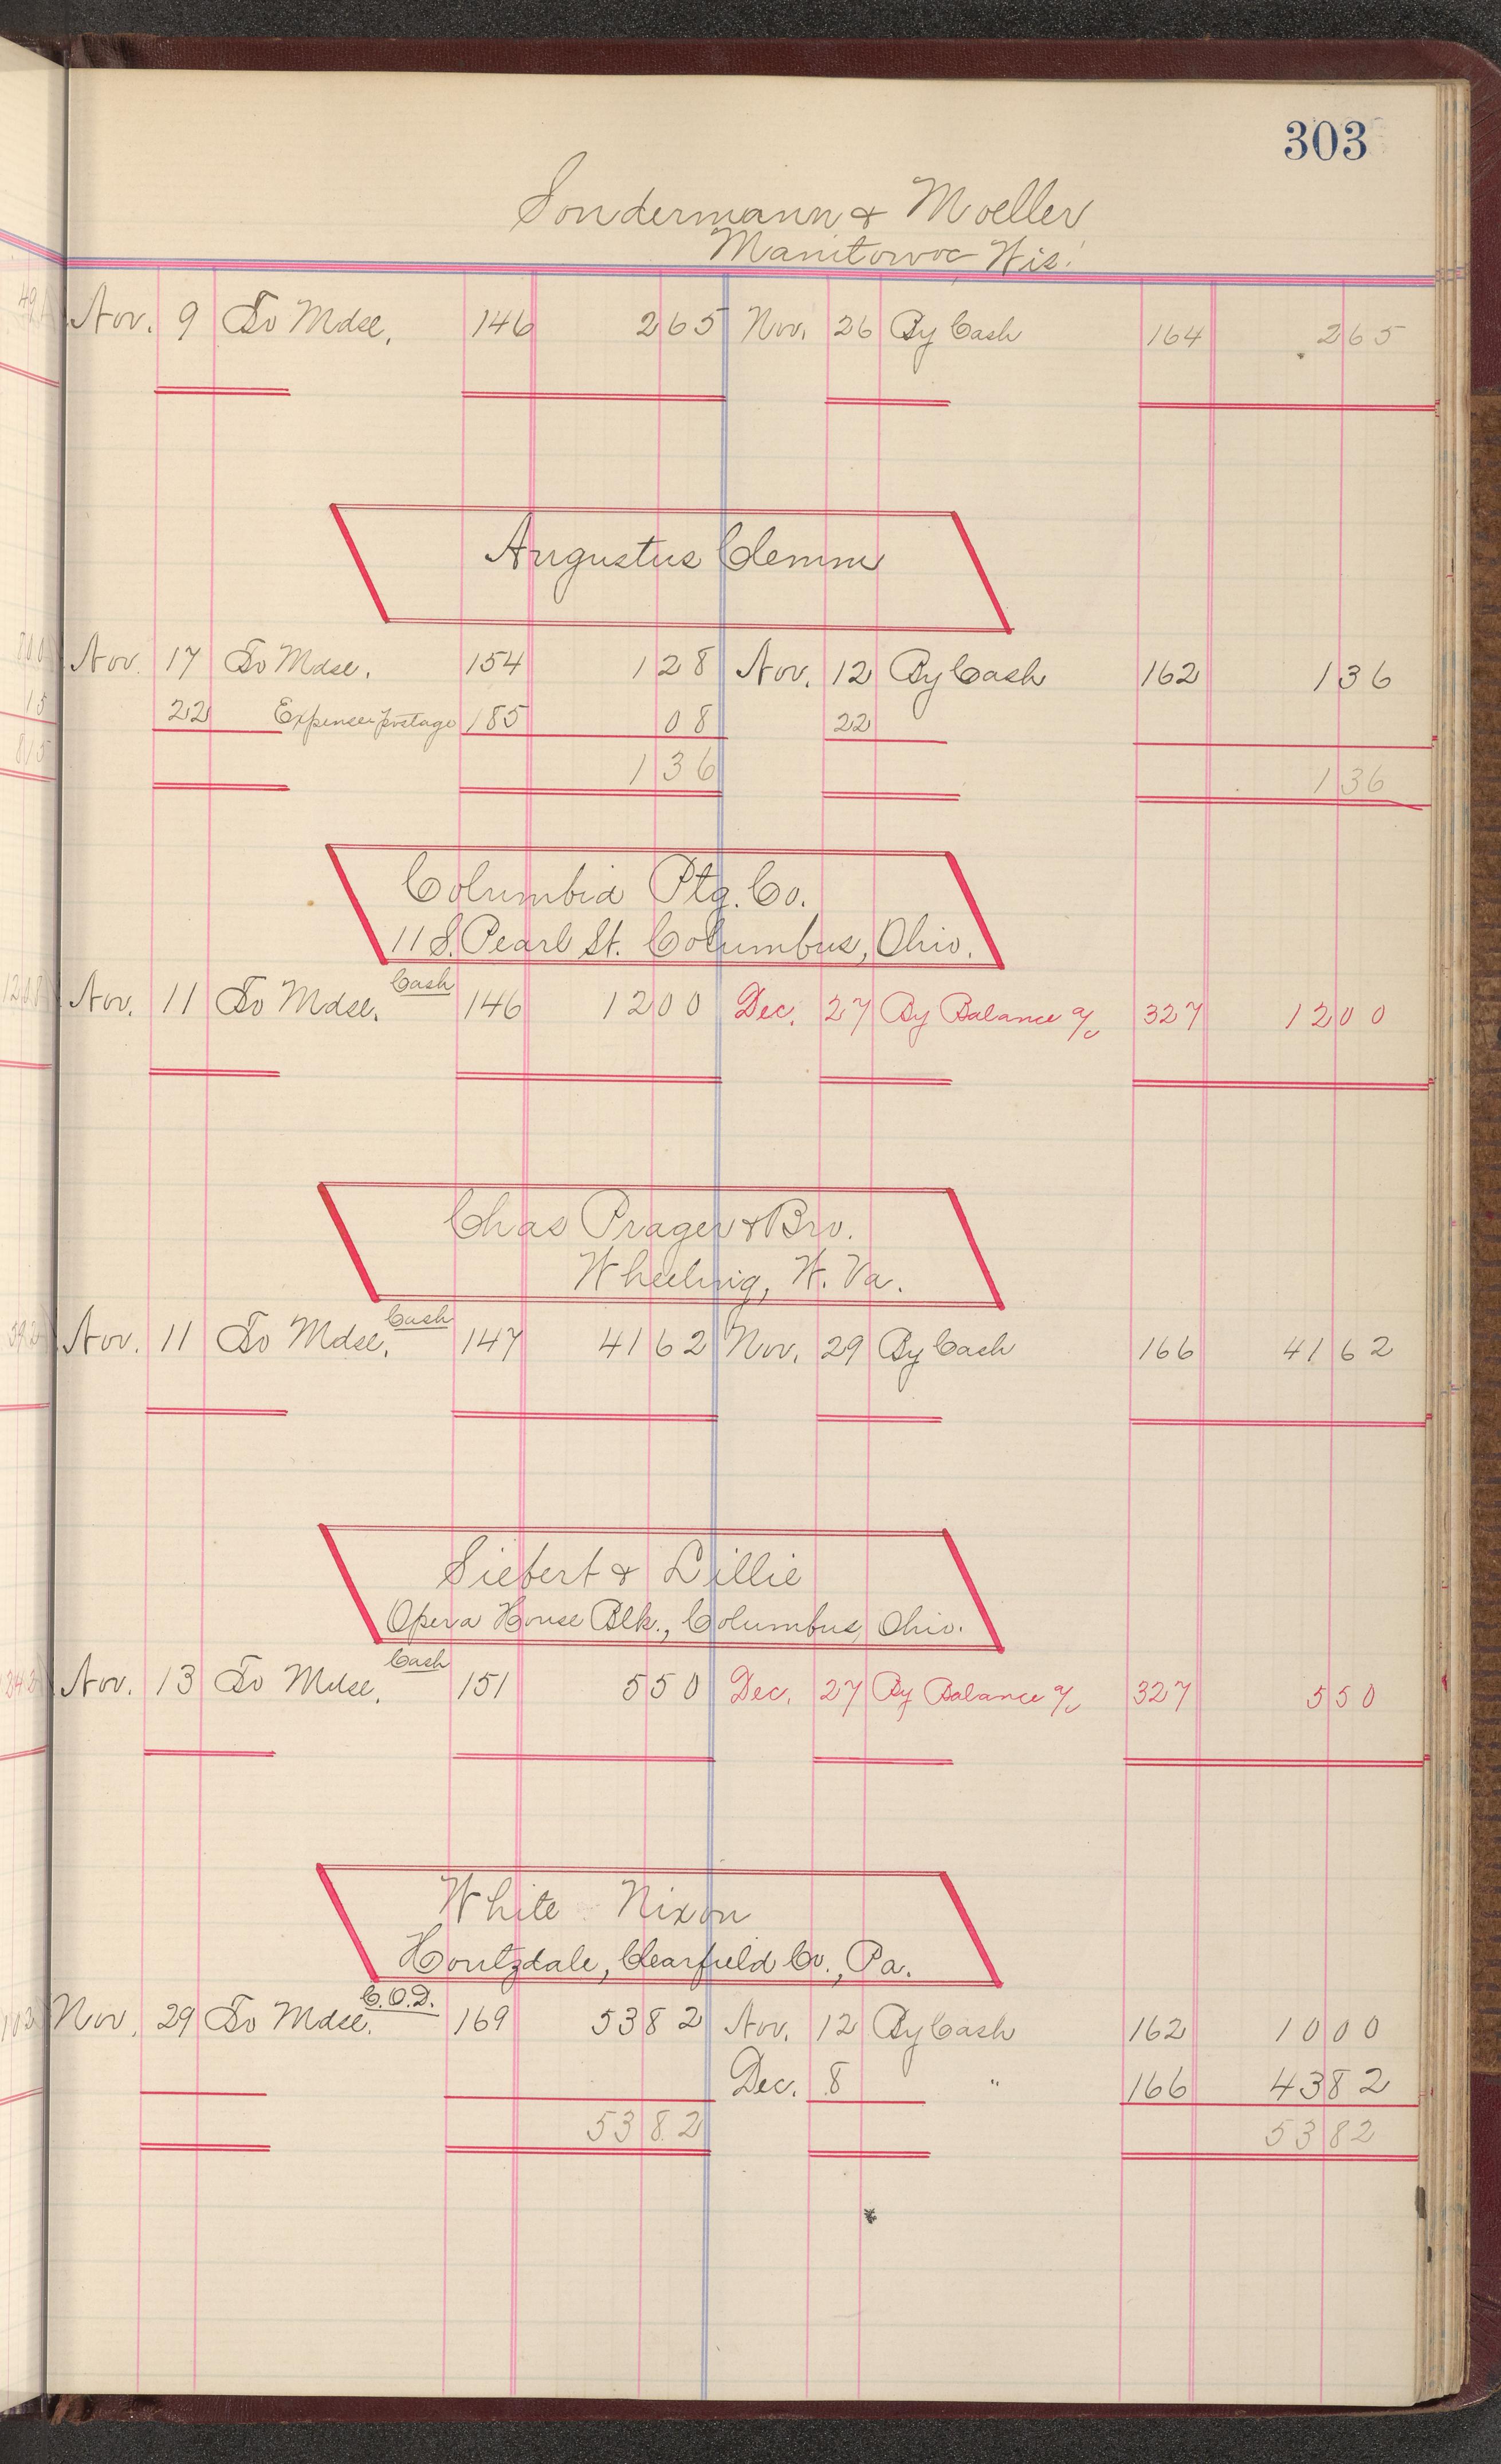 303
Sondermann & Moeller
Manitowoc Wis.
Nov. 9 To Mdse. 146 2 65 Nov. 26 By Cash 164 2 65
Augustus Clemm
Nov. 17 To Mdse. 154 1 28 Nov. 12 By Cash 162 1 36
22 Expense postage 185 08 22
1 36 1 36
Columbia Ptg. Co.
11 S. Pearl St. Columbus, Ohio.
Cash
Nov. 11 To Mdse. 146 12 00 Dec. 27 By Balance a/c 327 12 00
Chas Prager & Bro.
Wheeling, W. Va.
Cash
Nov. 11 To Mdse. 147 41 62 Nov. 29 By Cash 166 41 62
Siebert & Lillie
Opera House Blk., Columbus, Ohio.
Cash
Nov. 13 To Mdse. 151 5 50 Dec. 27 By Balance a/c 327 5 50
White Nixon
Houtzdale, Clearfield Co., Pa.
C.O.D.
Nov. 29 To Mdse. 169 53 82 Nov. 12 By Cash 162 10 00
Dec. 8 " 166 43 82
53 82 53 82